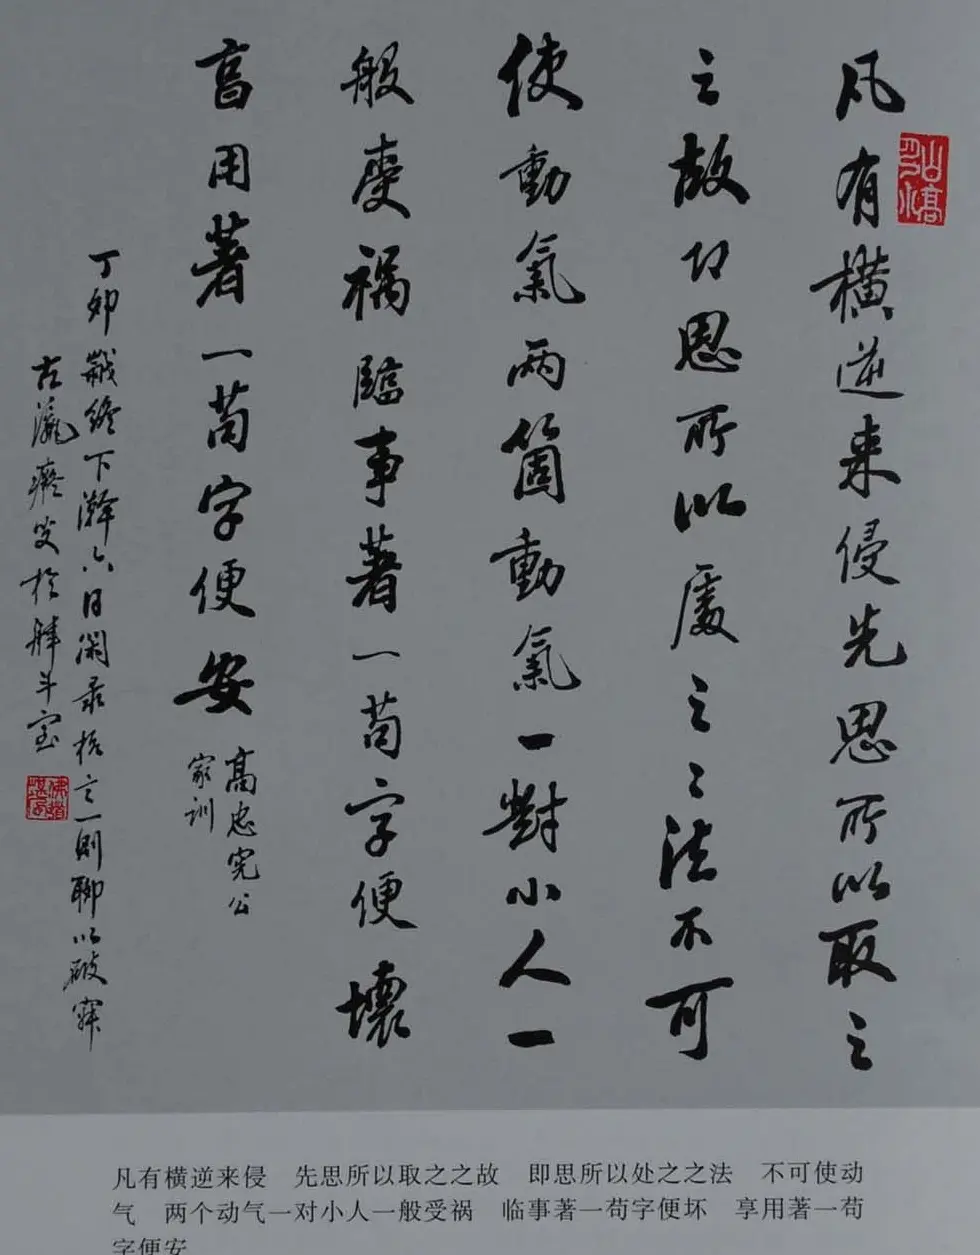 凡有橫逆来侵先思所以取之
之故即思所以處之之法不可
使動氣兩箇動氣一對小人一
般受禍臨事著一苟字便壞
享用著一苟字便安
高忠宪公
家训
丁卯歲終下澣六日閑录格言一則聊以破寂
古瀛癡叟於舴斗室
凡有横逆来侵　先思所以取之之故　即思所以处之之法　不可使动
气　两个动气一对小人一般受祸　临事著一苟字便坏　享用著一苟
字便安